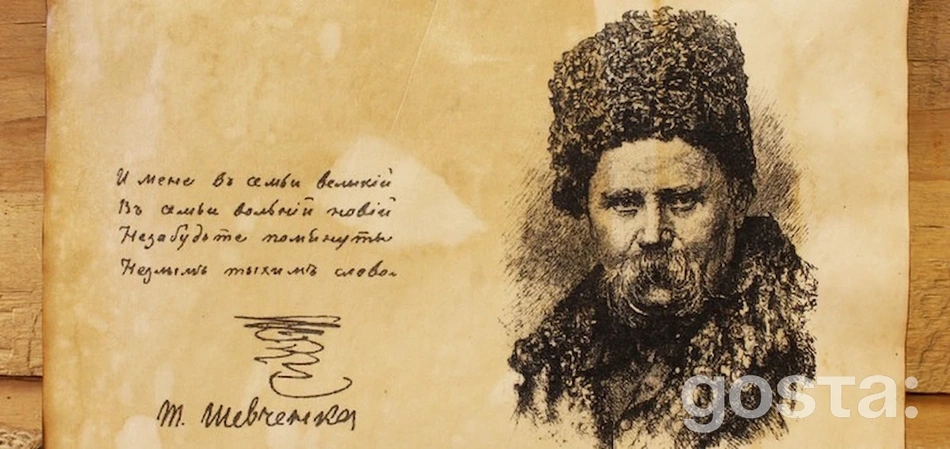 И мене въ семьи великій
Въ семьи вольній новій
Незабудьте помъянуты
Незлымъ тыхимъ словом
Т. Шевченка
gosta: